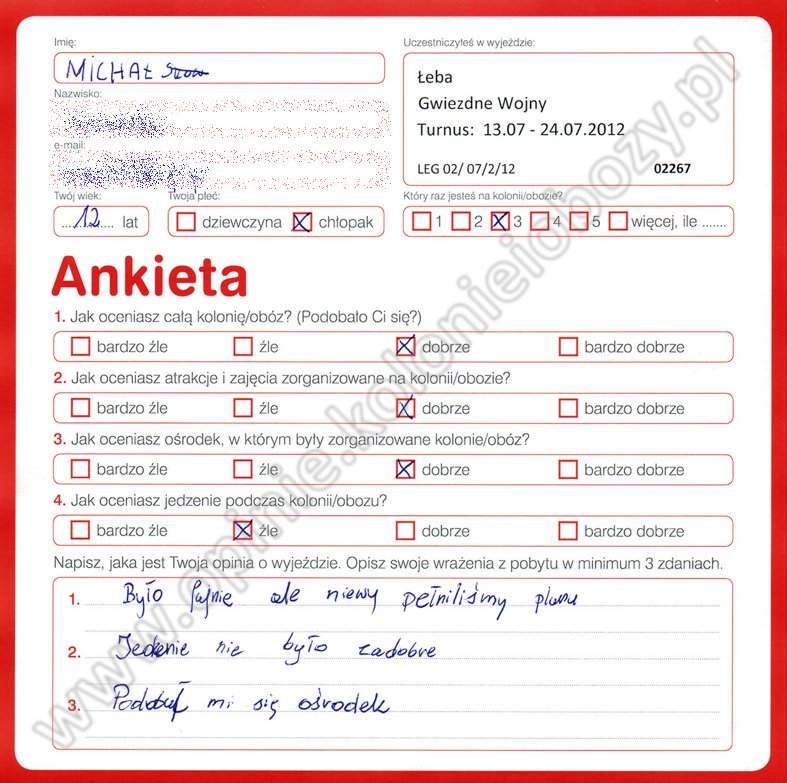 Imię: Uczestniczyłeś w wyjeździe:
MICHAŁ
Łeba
Nazwisko:
Gwiezdne Wojny
Turnus: 13.07 - 24.07.2012
e-mail:
LEG 02/ 07/2/12 02267
Twój wiek: Twoja płeć: Który raz jesteś na kolonii/obozie?
....12.... lat dziewczyna chłopak 1 2 3 4 5 więcej, ile .......
Ankieta
1. Jak oceniasz całą kolonię/obóz? (Podobało Ci się?)
bardzo źle źle dobrze bardzo dobrze
2. Jak oceniasz atrakcje i zajęcia zorganizowane na kolonii/obozie?
bardzo źle źle dobrze bardzo dobrze
3. Jak oceniasz ośrodek, w którym były zorganizowane kolonie/obóz?
bardzo źle źle dobrze bardzo dobrze
4. Jak oceniasz jedzenie podczas kolonii/obozu?
bardzo źle źle dobrze bardzo dobrze
Napisz, jaka jest Twoja opinia o wyjeździe. Opisz swoje wrażenia z pobytu w minimum 3 zdaniach.
1. Było fajnie ale niewy pełniliśmy planu
2. Jedenie nie było zadobre
3. Podobał mi się ośrodek
www.opinie.kolonieiobozy.pl